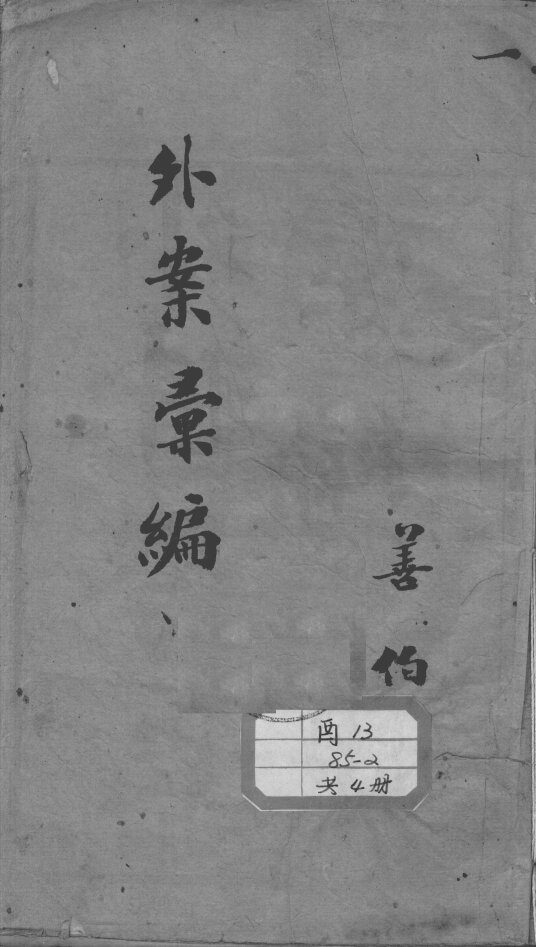 一
外案彙編
善伯
酉13
85-2
共4册